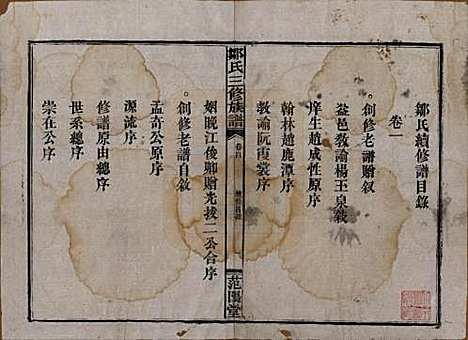 鄒氏續修譜目錄
卷一
。創修老譜贈叙
益邑教諭楊玉泉敘
庠生趙成性原序
翰林趙鹿潭序
教諭阮霞裳序
鄒氏三修族譜
卷首
范陽堂
姻晚江俊卿贈光拔二公合序
。創修老譜自敘
孟奇公原序
源流序
修譜原由總序
世系總序
崇在公序